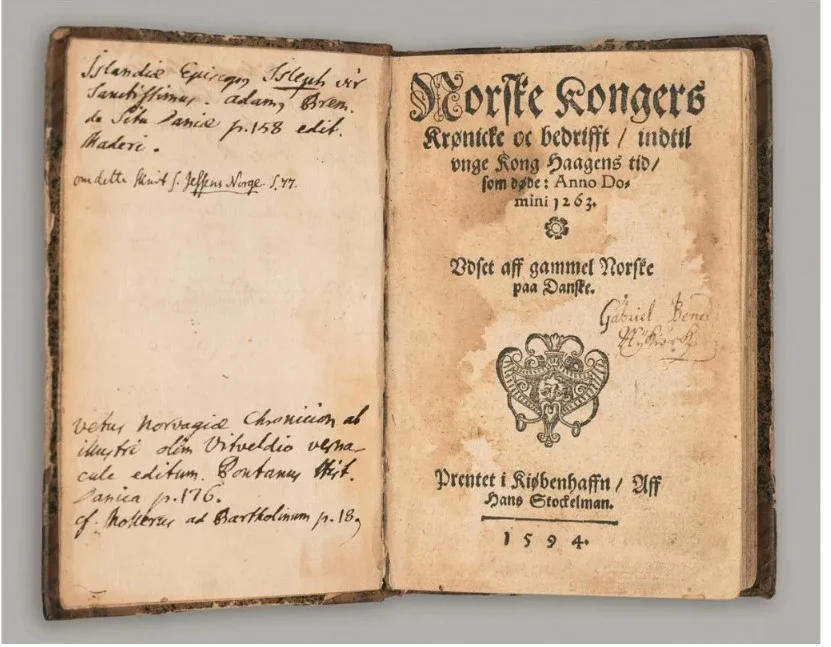 Islandiæ Episcop Isleph vir
Sanctissimus. Adamq Brem.
de Situ Daniæ p.158 edit.
Maderi.
om dette skrift s. Jessens Norge S. 77.
vetus Norvagiæ Chronicion ab
illustri olim Vitveldio verna-
cule editum. Pontanus Hist.
Danica p.176.
cf. Mollerus ad Bartholinum p.18
Norske Kongers
Krønicke oc bedrifft / indtil
vnge Kong Haagens tid /
som døde: Anno Do-
mini 1263.
Vdset aff gammel Norske
paa Danske.
Gabriel Bene
Prentet i Kiøbenhaffn / Aff
Hans Stockelman.
1594.